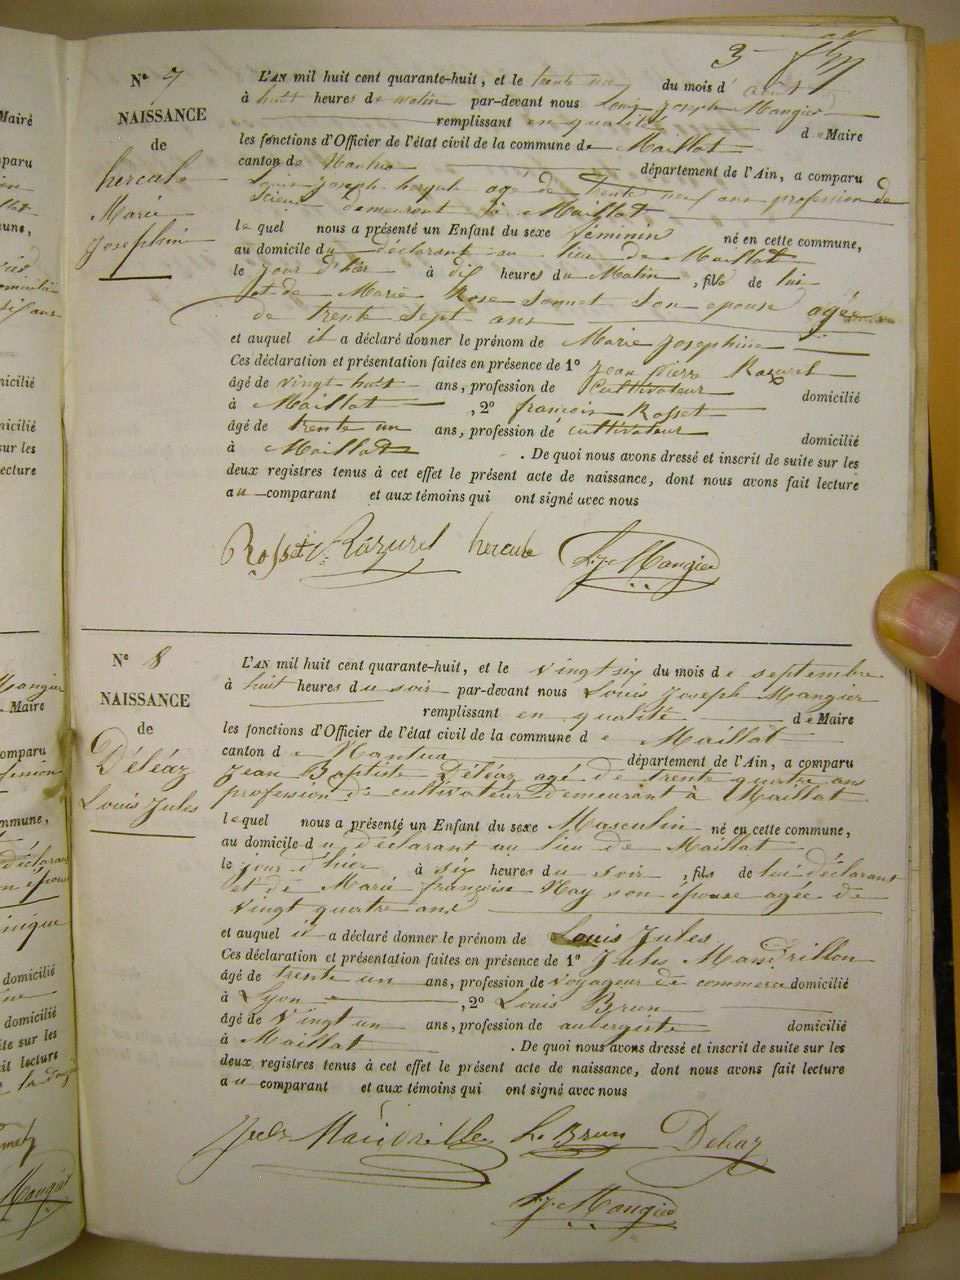 3
N° 7
NAISSANCE
de
hercule
Marie
Josephine
L'AN mil huit cent quarante-huit, et le trente un du mois d'août
à huit heures de matin par-devant nous Louis Joseph Mangier
remplissant en qualité de Maire
les fonctions d'Officier de l'état civil de la commune de Maillat
canton de Nantua département de l'Ain, a comparu
Louis Joseph hercule agé de trente neuf ans profession de
demeurant à Maillat
le quel nous a présenté un Enfant du sexe féminin né en cette commune,
au domicile du déclarant au lieu de Maillat
le jour d'hier à dix heures du Matin, fils de lui
et de Marie Rose Sonnet son épouse agée
de trente sept ans
et auquel il a déclaré donner le prénom de Marie Josephine
Ces déclaration et présentation faites en présence de 1° Jean Pierre Razurel
âgé de vingt huit ans, profession de cultivateur domicilié
à Maillat, 2° françois Rosset
âgé de trente un ans, profession de cultivateur domicilié
à Maillat. De quoi nous avons dressé et inscrit de suite sur les
deux registres tenus à cet effet le présent acte de naissance, dont nous avons fait lecture
au comparant et aux témoins qui ont signé avec nous
Rosset Razurel hercule L. J. Mangier
N° 8
NAISSANCE
de
Déléaz
Louis Jules
L'AN mil huit cent quarante-huit, et le vingt six du mois de septembre
à huit heures du soir par-devant nous Louis Joseph Mangier
remplissant en qualité de Maire
les fonctions d'Officier de l'état civil de la commune de Maillat
canton de Nantua département de l'Ain, a comparu
Jean Baptiste Déléaz agé de trente quatre ans
profession de cultivateur demeurant à Maillat
lequel nous a présenté un Enfant du sexe Masculin né en cette commune,
au domicile du déclarant au lieu de Maillat
le jour d'hier à six heures du soir, fils de lui déclarant
et de Marie françoise Nay son épouse agée de
vingt quatre ans
et auquel il a déclaré donner le prénom de Louis Jules
Ces déclaration et présentation faites en présence de 1° Jules Mandrillon
âgé de trente un ans, profession de voyageur de commerce domicilié
à Lyon, 2° Louis Brun
âgé de vingt un ans, profession de aubergiste domicilié
à Maillat. De quoi nous avons dressé et inscrit de suite sur les
deux registres tenus à cet effet le présent acte de naissance, dont nous avons fait lecture
au comparant et aux témoins qui ont signé avec nous
Jules Mandrillon L. Brun Deleaz
L. J. Mangier